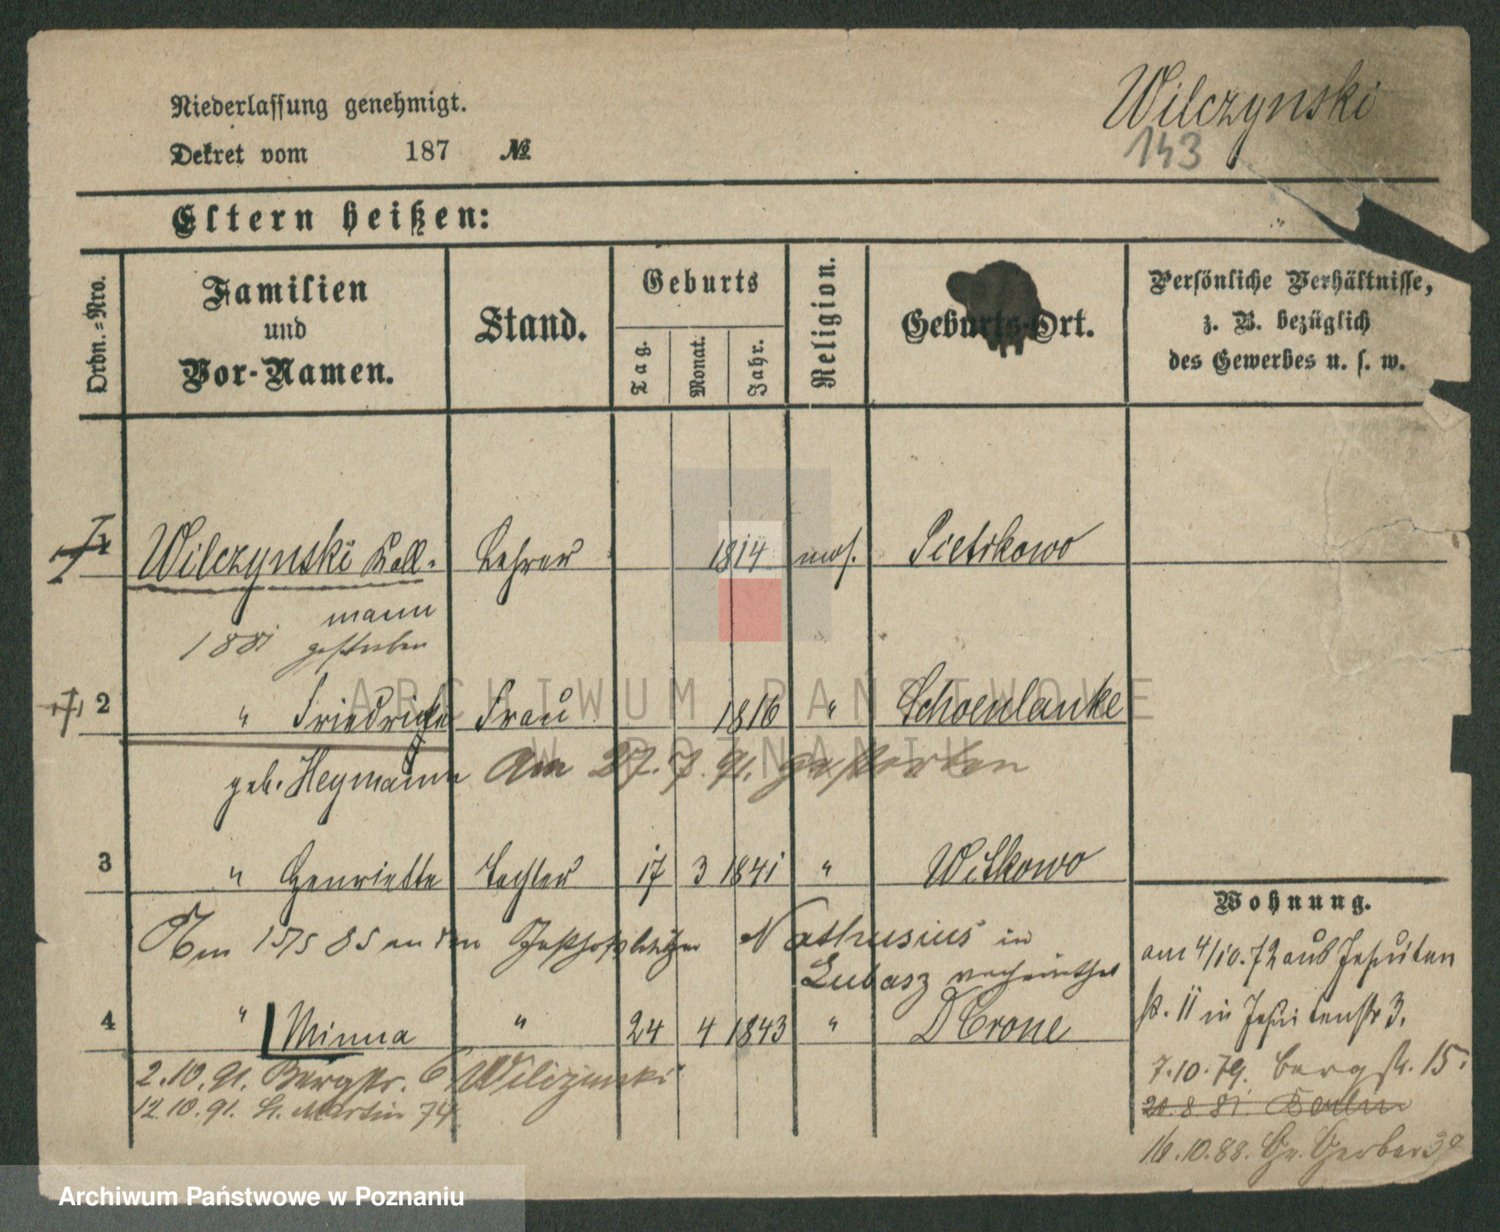 Niederlassung genehmigt.
Dekret vom 187 №
Wilczynski
143
Eltern heißen:
Ordn.=Nro.
Familien
und
Vor-Namen.
Stand.
Geburts
Tag.
Monat.
Jahr.
Religion.
Geburts-Ort.
Persönliche Verhältnisse,
z. B. bezüglich
des Gewerbes u. s. w.
1 Wilczynski Kall- Lehrer 1814 mos. Pietrkowo
mann
1881 gestorben
2 " Friedricke Frau 1816 " Schoenlanke
geb. Heymann Am 27.7.91. gestorben
3 " Henriette Tochter 17 3 1841 " Witkowo
Am 15/5 85 an den Nathusius in
Lubasz verheirathet
4 " Minna " 24 4 1843 " D Crone
2.10.91. Bergstr. 6 Wilczinski
12.10.91. St. Martin 74
Wohnung.
am 4/10.72 aus Jesuiten
str. 11 in Jesuitenstr 3.
7.10.79. Bergstr. 15.
20.8.81. Berlin
16.10.88. Gr. Gerber 39
ARCHIWUM PAŃSTWOWE
W POZNANIU
Archiwum Państwowe w Poznaniu